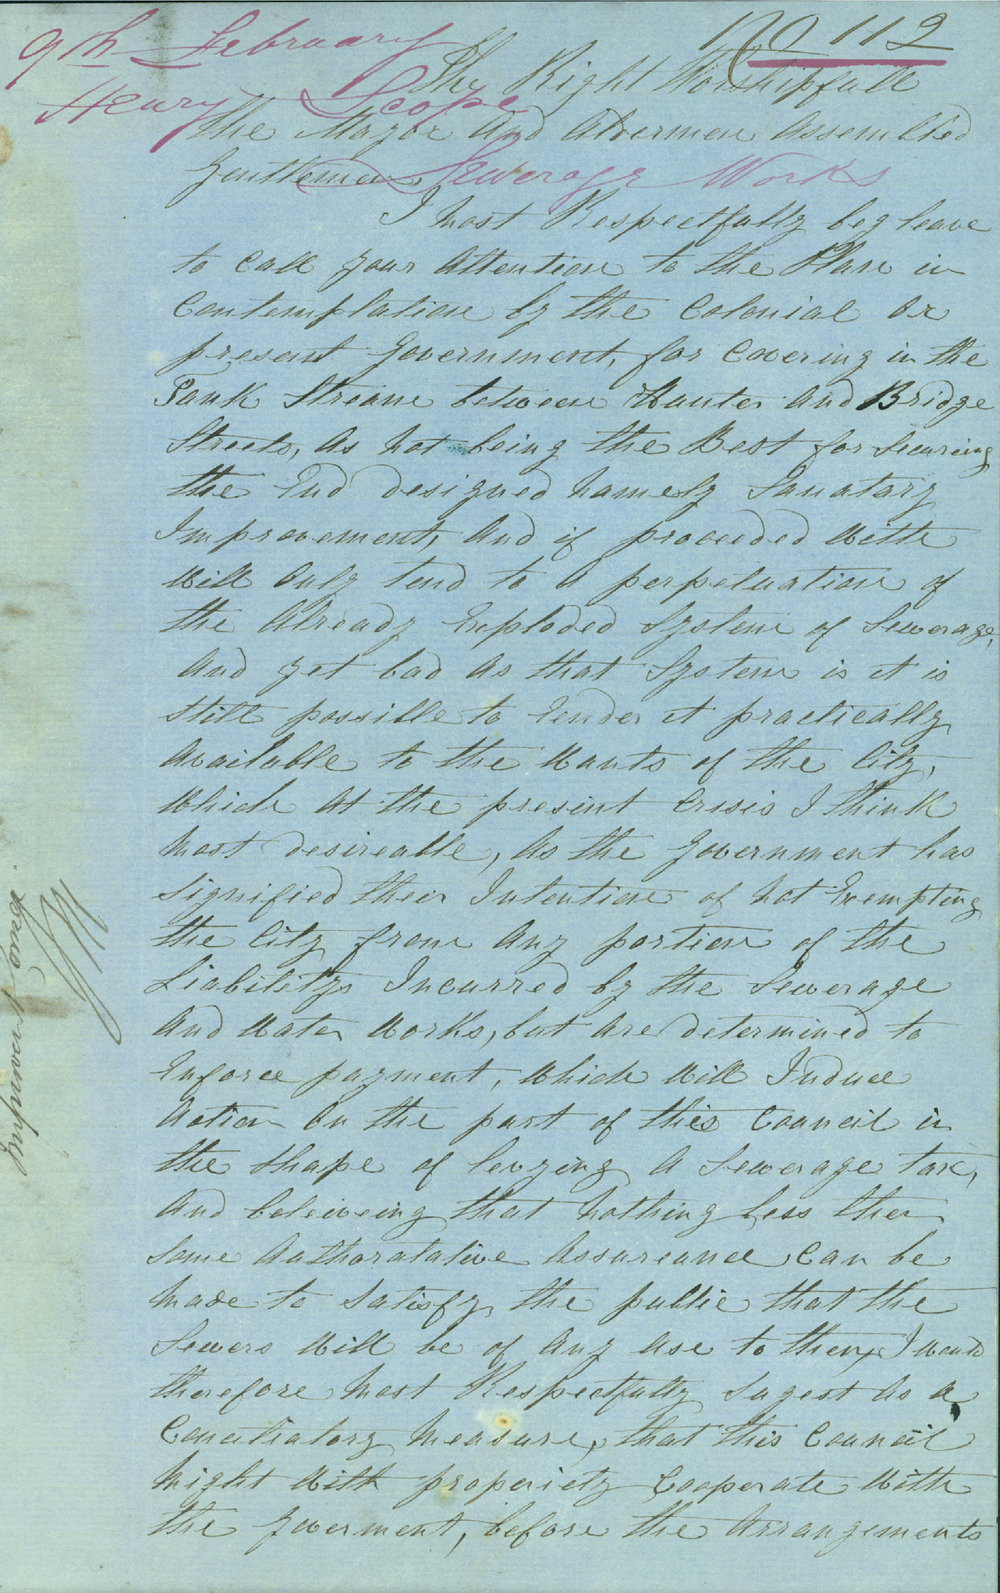 No 112
9th February
Henry Scope
Sewerage Works
The Right Worshipfull
the Mayor And Aldermen Assembled
Gentlemen
I Most Respectfully beg leave
to Call your Attention to the Plan in
Contemplation by the Colonial or
present Government, for Covering in the
Tank Stream between Hunter And Bridge
Streets, As Not being the Best for Securing
the End designed Namely Sanatary
Improvement, And if proceeded With
Will Only tend to A perpetuation of
the Already Exploded System of Sewerage,
And yet bad As that System is it is
Still possible to render it practically
Available to the Wants of the City,
Which At the present Crisis I think
Most desireable, As the Government has
Signified their Intention of Not Exempting
the City from Any portion of the
Liabilitys Incurred by the Sewerage
And Water Works, but Are determined to
Enforce payment, Which Will Induce
Action On the part of this Council in
the Shape of levying A Sewerage tax,
And beleiveing that Nothing Less then
Some Authoratative Assureance Can be
Made to Satisfy the public that the
Sewers Will be of Any Use to them, I Would
therefore Most Respectfully Sugest As A
Conciliatory Measure, that this Council
Might With propriety Cooperate With
the Goverment, before the Arrangements
Improvement Comee